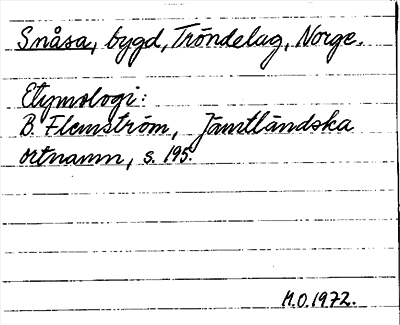 Snåsa, bygd, Tröndelag, Norge.
Etymologi:
B. Flemström, Jämtländska
ortnamn, s. 195.
M.O.1972.